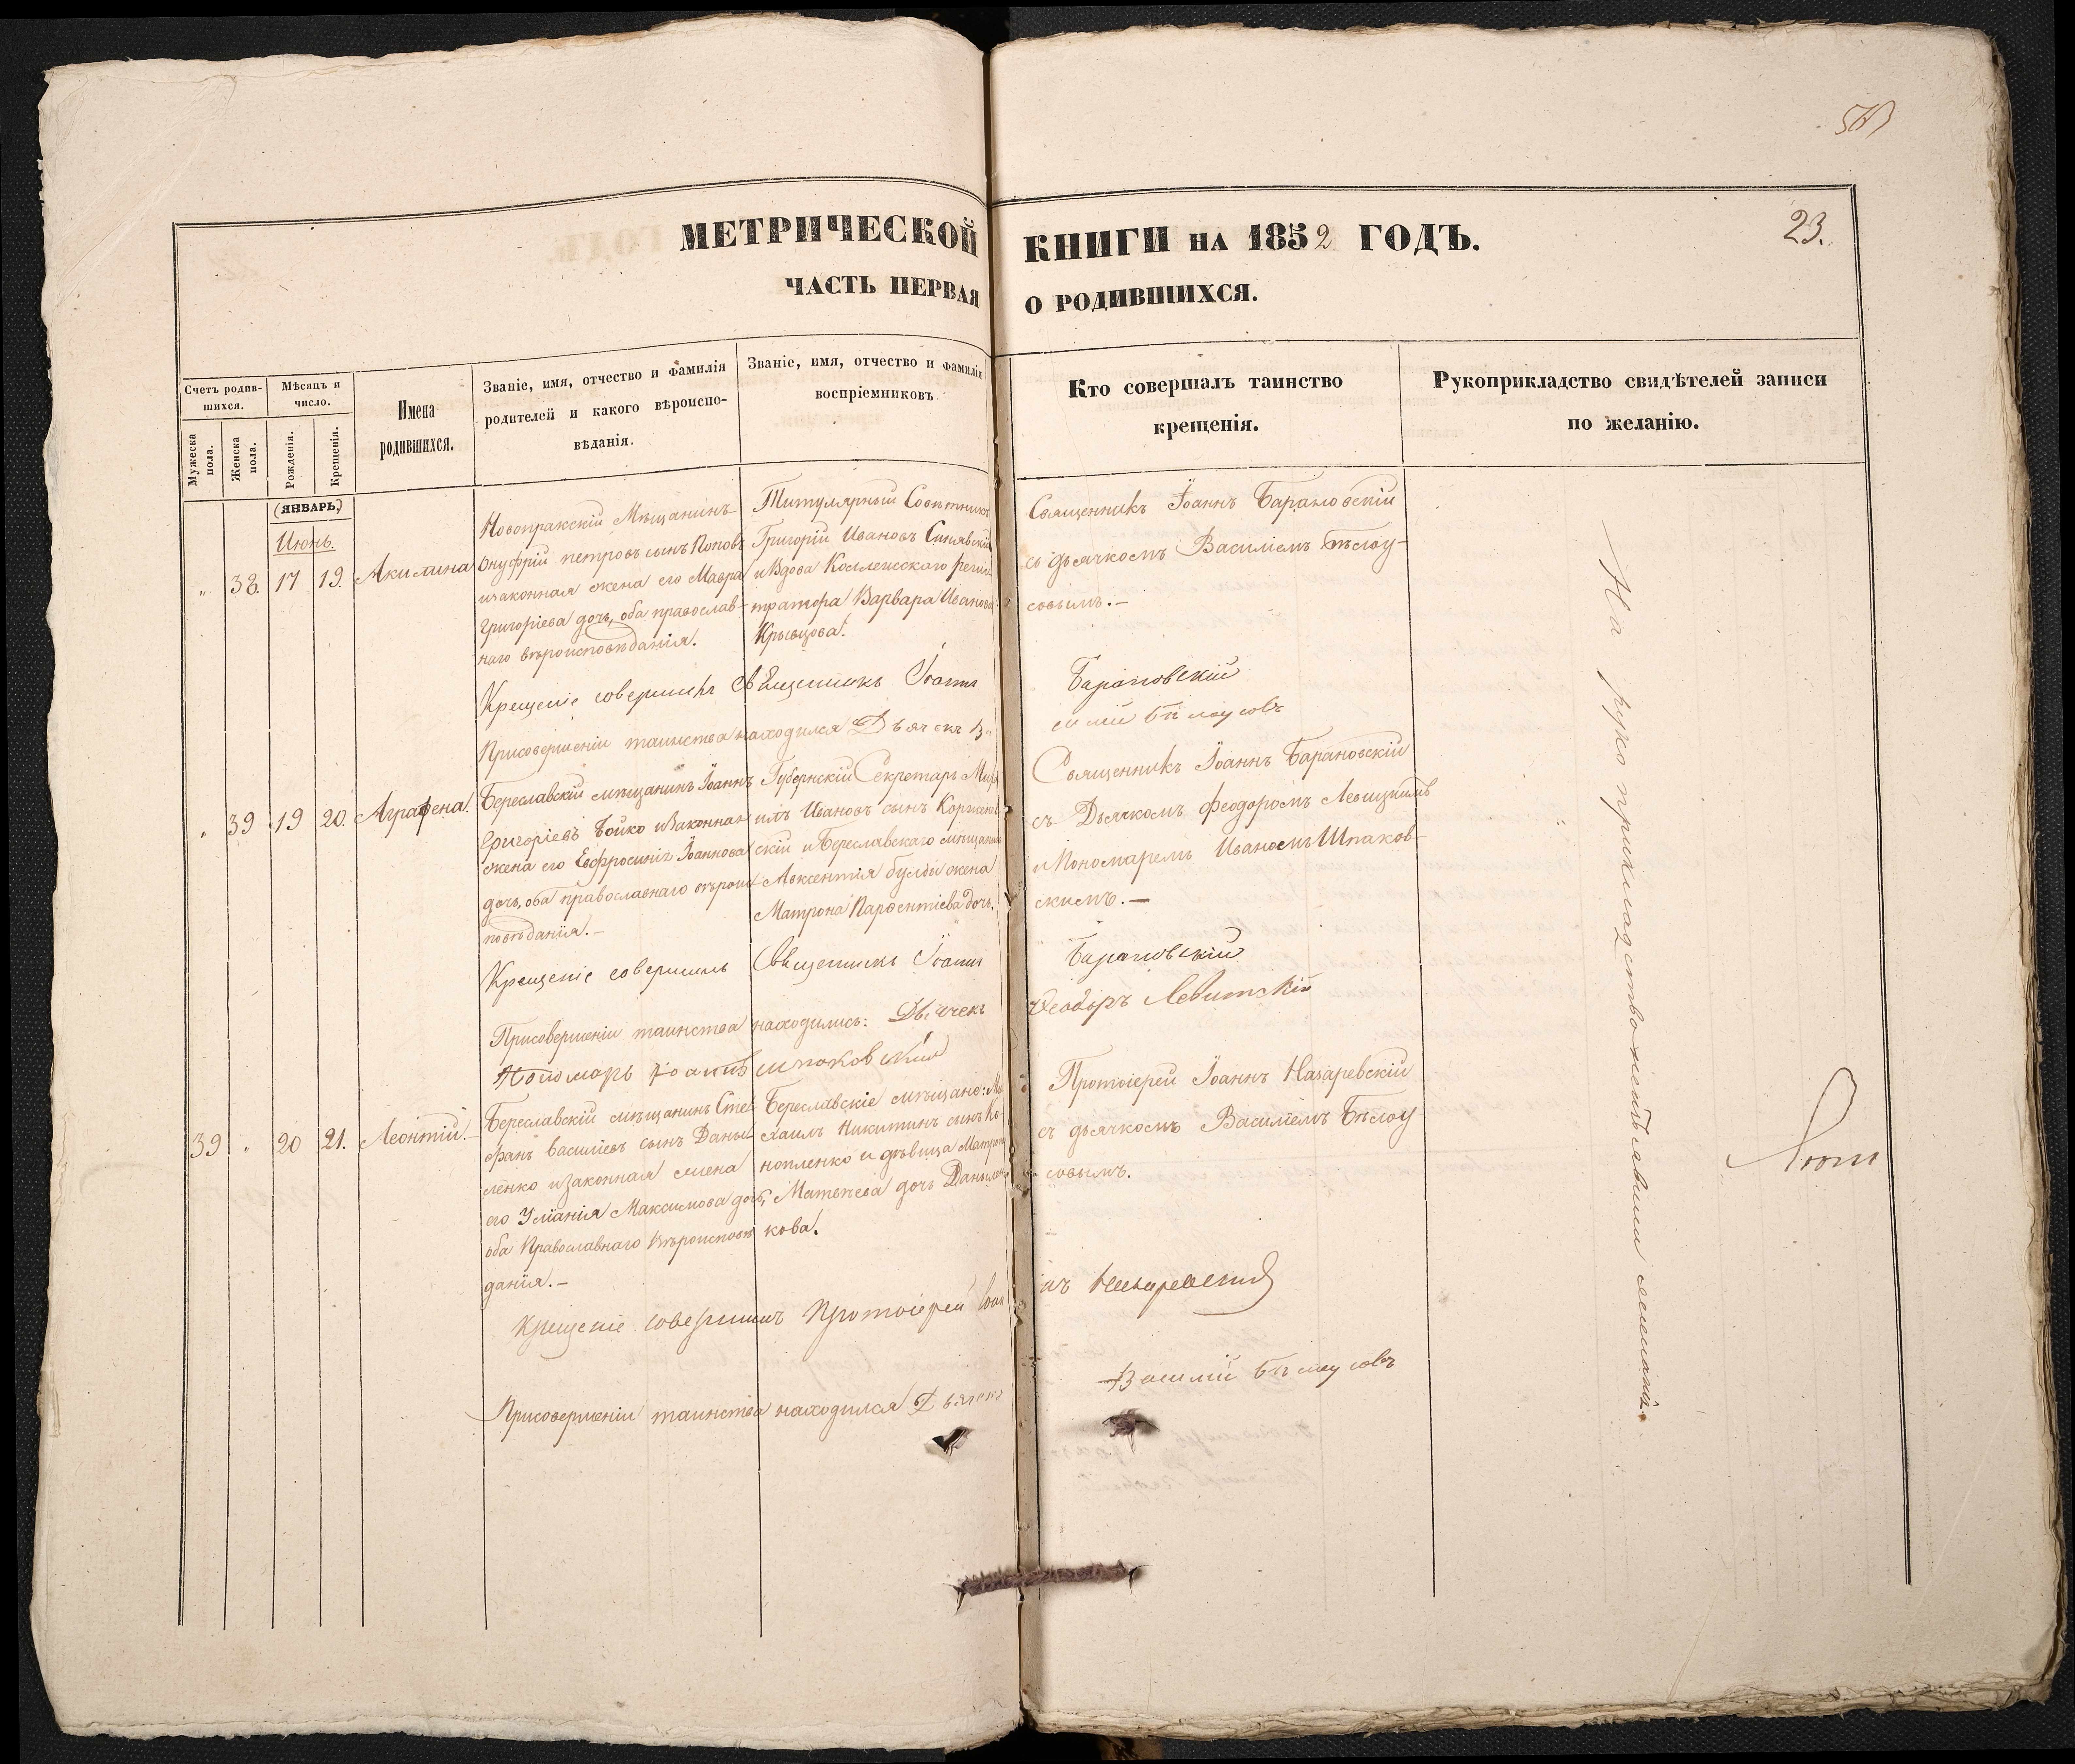 23.
МЕТРИЧЕСКОЙ КНИГИ НА 1852 ГОДЪ.
ЧАСТЬ ПЕРВАЯ О РОДИВШИХСЯ.
Счетъ родив-
шихся.
Мужеска пола.
Женска пола.
Мѣсяцъ и
число.
Рожденія.
Крещенія.
Имена
родившихся.
Званіе, имя, отчество и фамилія
родителей и какого вѣроиспо-
вѣданія.
Званіе, имя, отчество и фамилія
воспріемниковъ.
Кто совершалъ таинство
крещенія.
Рукоприкладство свидѣтелей записи
по желанію.
(ЯНВАРЬ.)
Июнь.
" 38. 17 19. Акилина
Новопражскій Мѣщанинъ
Онуфрій петровъ сынъ Поповъ
изаконная жена его Мавра
григоріева дочь, оба православ-
наго вѣроисповѣданія.
Титулярный Совѣтникъ
Григорій Ивановъ Синявскій
и Вдова Коллежскаго реги-
тратора Варвара Иванова
Крывцова.
Священникъ Іоаннъ Барановскій
съ дьячкомъ Василіемъ Бѣлоу-
совымъ.-
Крещеніе совершилъ Священникъ Іоаннъ Барановскій
Присовершеніи таинства находился Дьячекъ Ва-
силій Бѣлоусовъ
" 39 19 20. Аграфена.
Береславскій мѣщанинъ Іоаннъ
Григоріевъ Бойко изаконная
жена его Евфросинія Іоаннова
дочь, оба православнаго вѣроис-
повѣданія.-
Губернскій Секретарь Миха-
илъ Ивановъ сынъ Коржен-
скій и Береславскаго мѣщанина
Авксентія булды жена
Матрона Парѳентіева дочь.
Священникъ Іоаннъ Барановскій
съ Дьячкомъ Феодоромъ Левицкимъ
и Пономаремъ Иваномъ Шпаков-
скимъ.-
Крещеніе совершилъ Священникъ Іоаннъ Барановскій
Присовершеніи таинства находились: Дьячекъ Ѳеодоръ Левитскій
Пономарь Іоаннъ Шпаковскій
39 " 20 21. Леонтій.-
Береславскій мѣщанинъ Сте-
фанъ василіевъ сынъ Даны-
ленко изаконная жена
его Уліанія Максимова дочь,
оба Православнаго вѣроисповѣ-
данія.-
Береславскіе мѣщане: Ми-
хаилъ Никитинъ сынъ Ко-
нопленко и дѣвица Матрона
Матвѣева дочь Данылен-
кова.
Протоіерей Іоаннъ Назаревскій
съ дьячкомъ Василіемъ Бѣлоу
совымъ.
Крещеніе совершилъ Протоіерей Іоан
нъ Назаревскій
Присовершеніи таинства находился Дьячекъ
Василій Бѣлоусовъ
На рукоприкладство